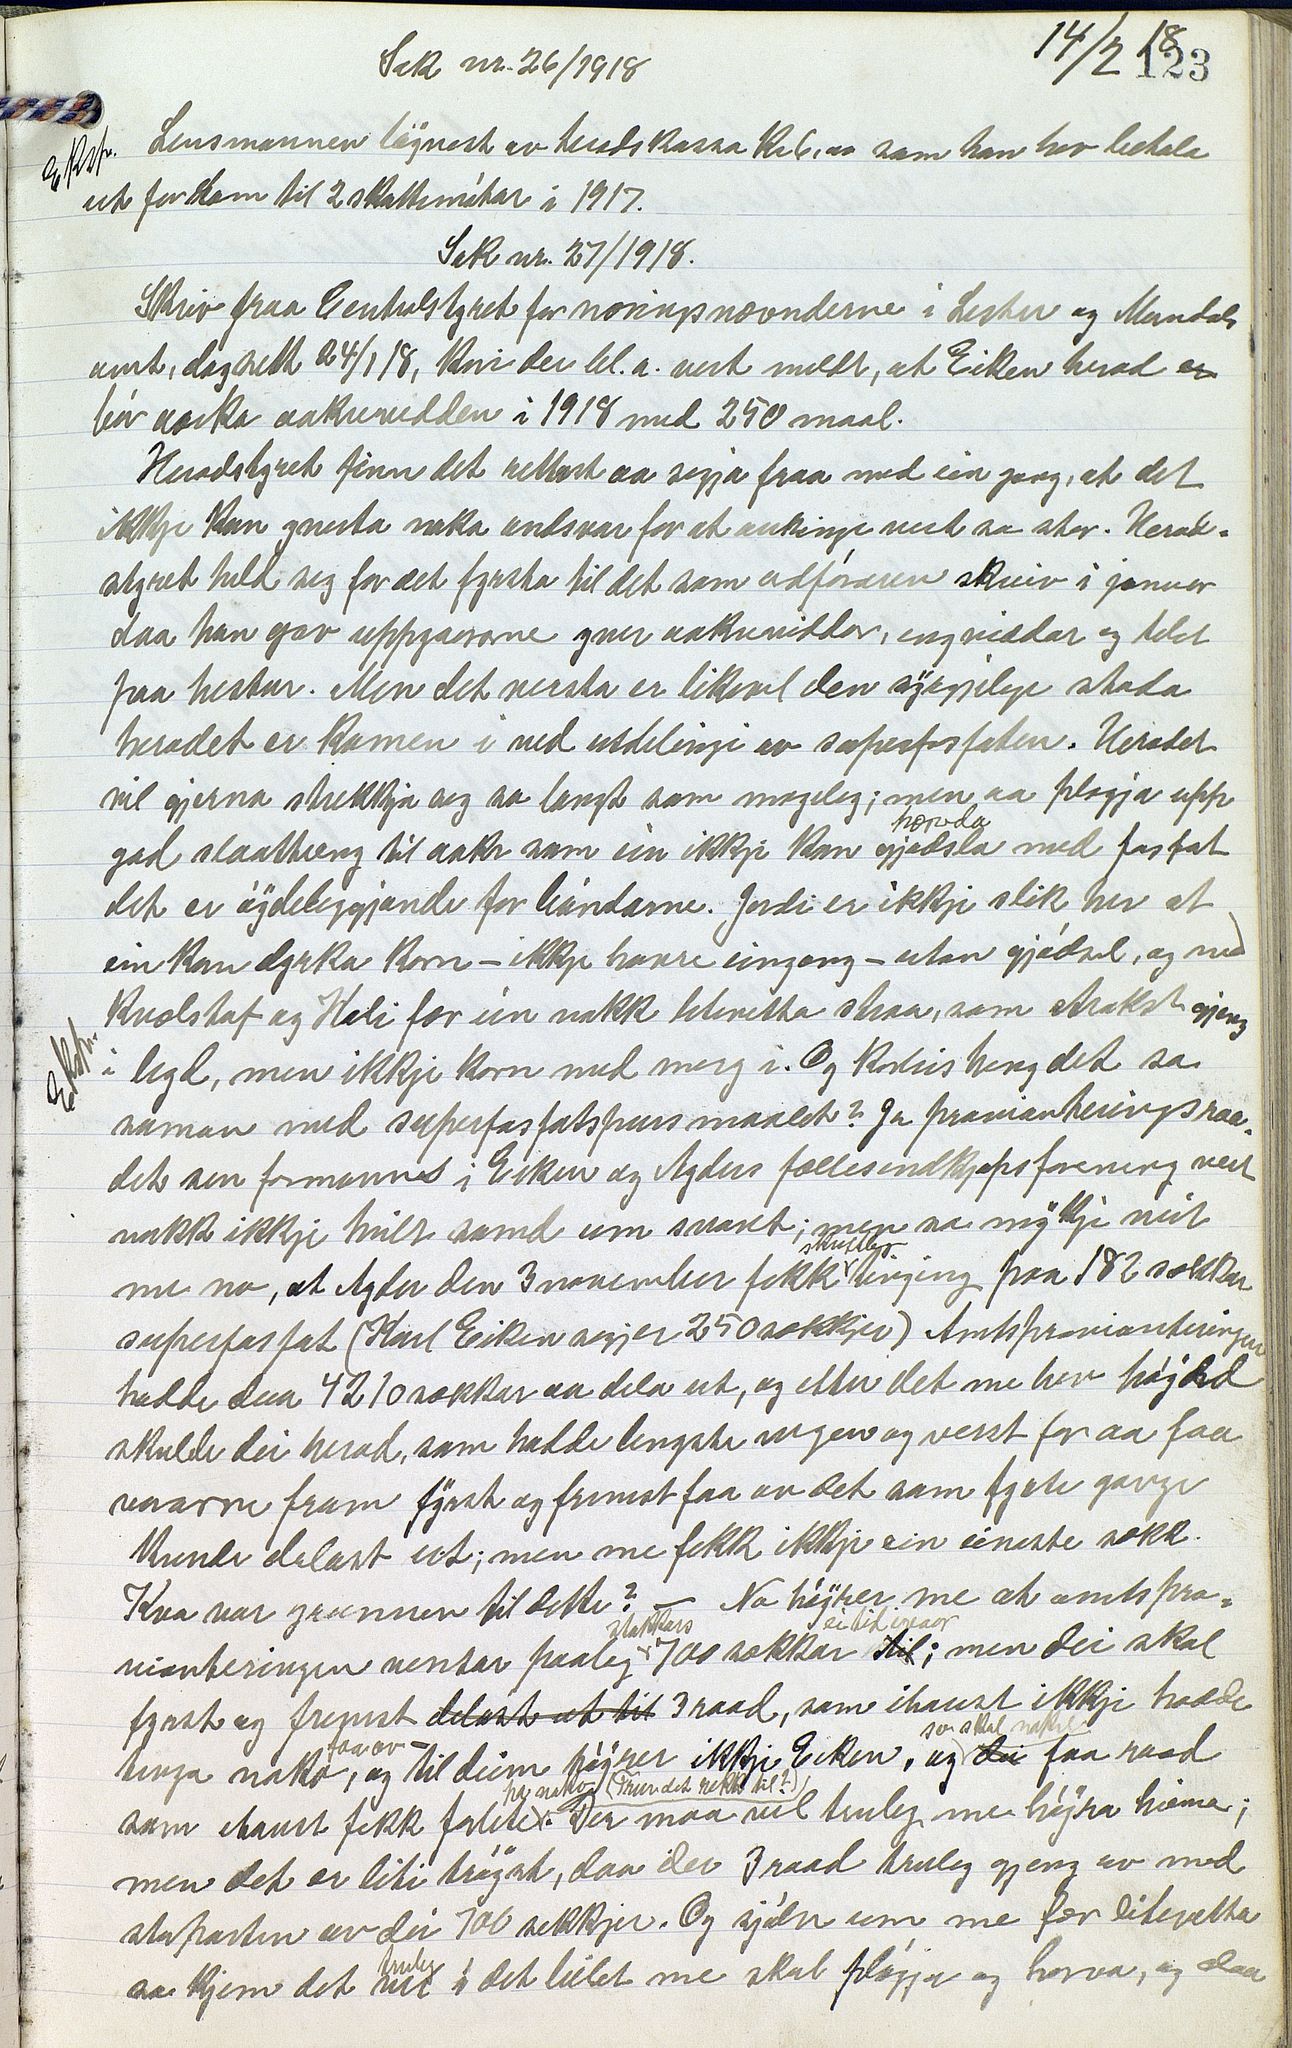 14/2 18
123
Sak nr. 26/1918
Ekstr.
Lensmannen lögnest av heradskassa Kr 6,00 som han hev betala
ut for ham til 2 skattemötar i 1917.
Sak nr. 27/1918.
Skriv fraa Centralstyret for næringsnevnderne i Lister og Mandals
amt, dagsett 24/1 18, kori der bl. a. vert meldt, at Eiken herad er
bör auka aakervidden i 1918 med 250 maal.
Heradstyret finn det rettast aa segja fraa med ein gong, at det
ikkje kan gnesta noka andsvar for at aukinge vert so stor. Herad-
styret held seg for det fyrsta til det som ordföraren skreiv i januar
daa han gav uppgaavorne yver aakervidder, engviddar og talet
paa hestar. Men det versta er likevel den syrgjelege stoda
heradet er komen i ved utdelingi av superfosfaten. Heradet
vil gjerna strekkja seg so langt som mogeleg; men aa plogja upp
god slaatteeng til aaker som ein ikkje kan hævda gjödsla med fosfat
det er öydeleggjande for böndarne. Jordi er ikkje slik her at
ein kan dyrka korn – ikkje havre eingong – utan gjödsel, og med
Kvælstof og Kali fær ein nokk litevetta straa, som strakst gjeng
Ekstr.
i legd, men ikkje korn med merg i. Og korleis heng det so
saman med superfosfatspursmaalet? Ja provianteringsraa-
det sin formann i Eiken og Agders fællesindkjøpsforening vert
nokk ikkje heilt samd um svaret; men so mykje veit
me no, at Agder den 3 november fekk skriftleg tinging paa 182 sekkar
superfosfat (Karl Eiken segjer 250 sekkjer) Amtsprovianteringen
hadde daa 4210 sekkar aa dela ut, og etter det me hev höyrd
skulde dei herad, som hadde lengste vegen og verst for aa faa
vararne fram fyrst og fremst faa av det som fyrste gonge
kunde delast ut; men me fekk ikkje ein eineste sekk.
Kva var grunnen til dette? – No höyrer me at amtspro-
vianteringen ventar paaleg stakkars 700 sekkar ei tid ivaar til; men dei skal
fyrst og fremst delast ut til 3 raad, som ihaust ikkje hadde
tinga noko, faa av – og til deim höyrer ikkje Eiken, og so skal nokre dei faa raad
som ihaust fekk forlite paa noko (Trur det rekk til?). Der maa vel truleg me höyra heime;
men det er liti tröyst, daa dei 3 raad truleg gjeng av med
storparten av dei 700 sekkjer. Og sjölv um me fær litevetta
so kjem det truleg i det leitet me skal plögja og horva, og daa